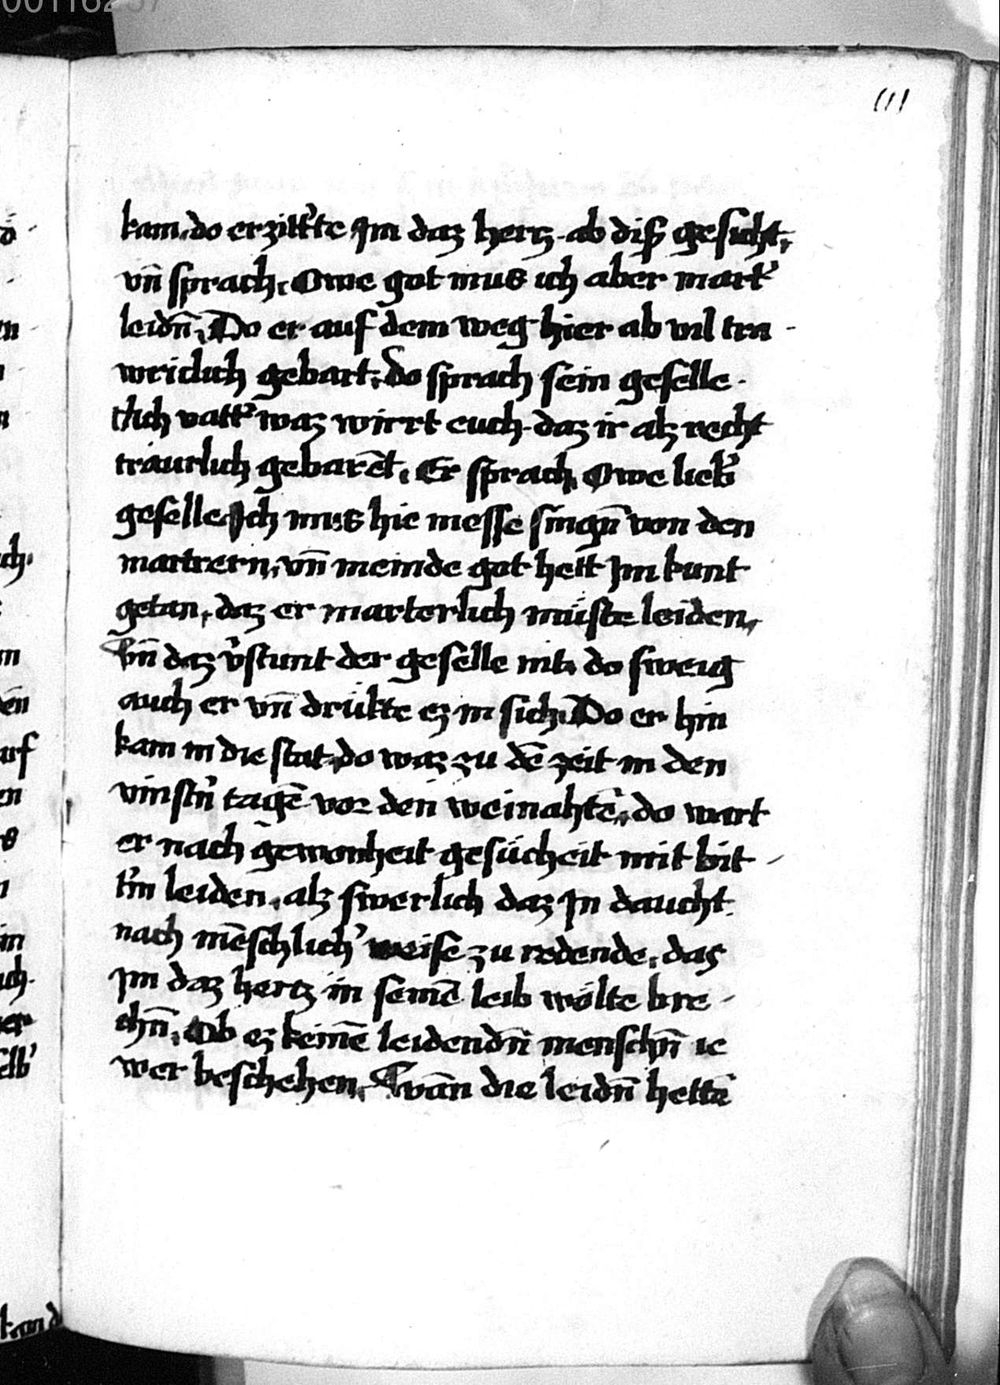 00116257
111
kam. do erzitt'te Jm daz hertz. ab diß gesicht.
vn̄ sprach. Owe got mus ich aber mart'
leidn̄. Do er auf dem weg hier ab vil tra -
wriclich gebart. do sprach sein geselle.
Ach vatt' waz wirrt euch. daz ir alz recht
traurlich gebarēt. Er sprach. Owe lieb'
geselle Jch mus hie messe singn̄ von den
martrern. vn̄ meinde got hett Jm kunt
getan. daz er marterlich müste leiden.
Vn̄ daz v'stunt der geselle nit. do sweig
auch er vn̄ drükte ez in sich. Do er hin
kam in die stat. do waz zu dē zeit in den
vinstn̄ tagē vor den weinahtē. do wart
er nach gewonheit gesücheit mit bit -
t'm leiden. alz swerlich daz Jn daucht
nach mēschlich' weise zu redende. das
Jm daz hertz in seinē leib wölte bre -
chn̄. Ob ez keinē leidendn̄ menschn̄ ie
wer beschehen. Wān die leidn̄ hettē